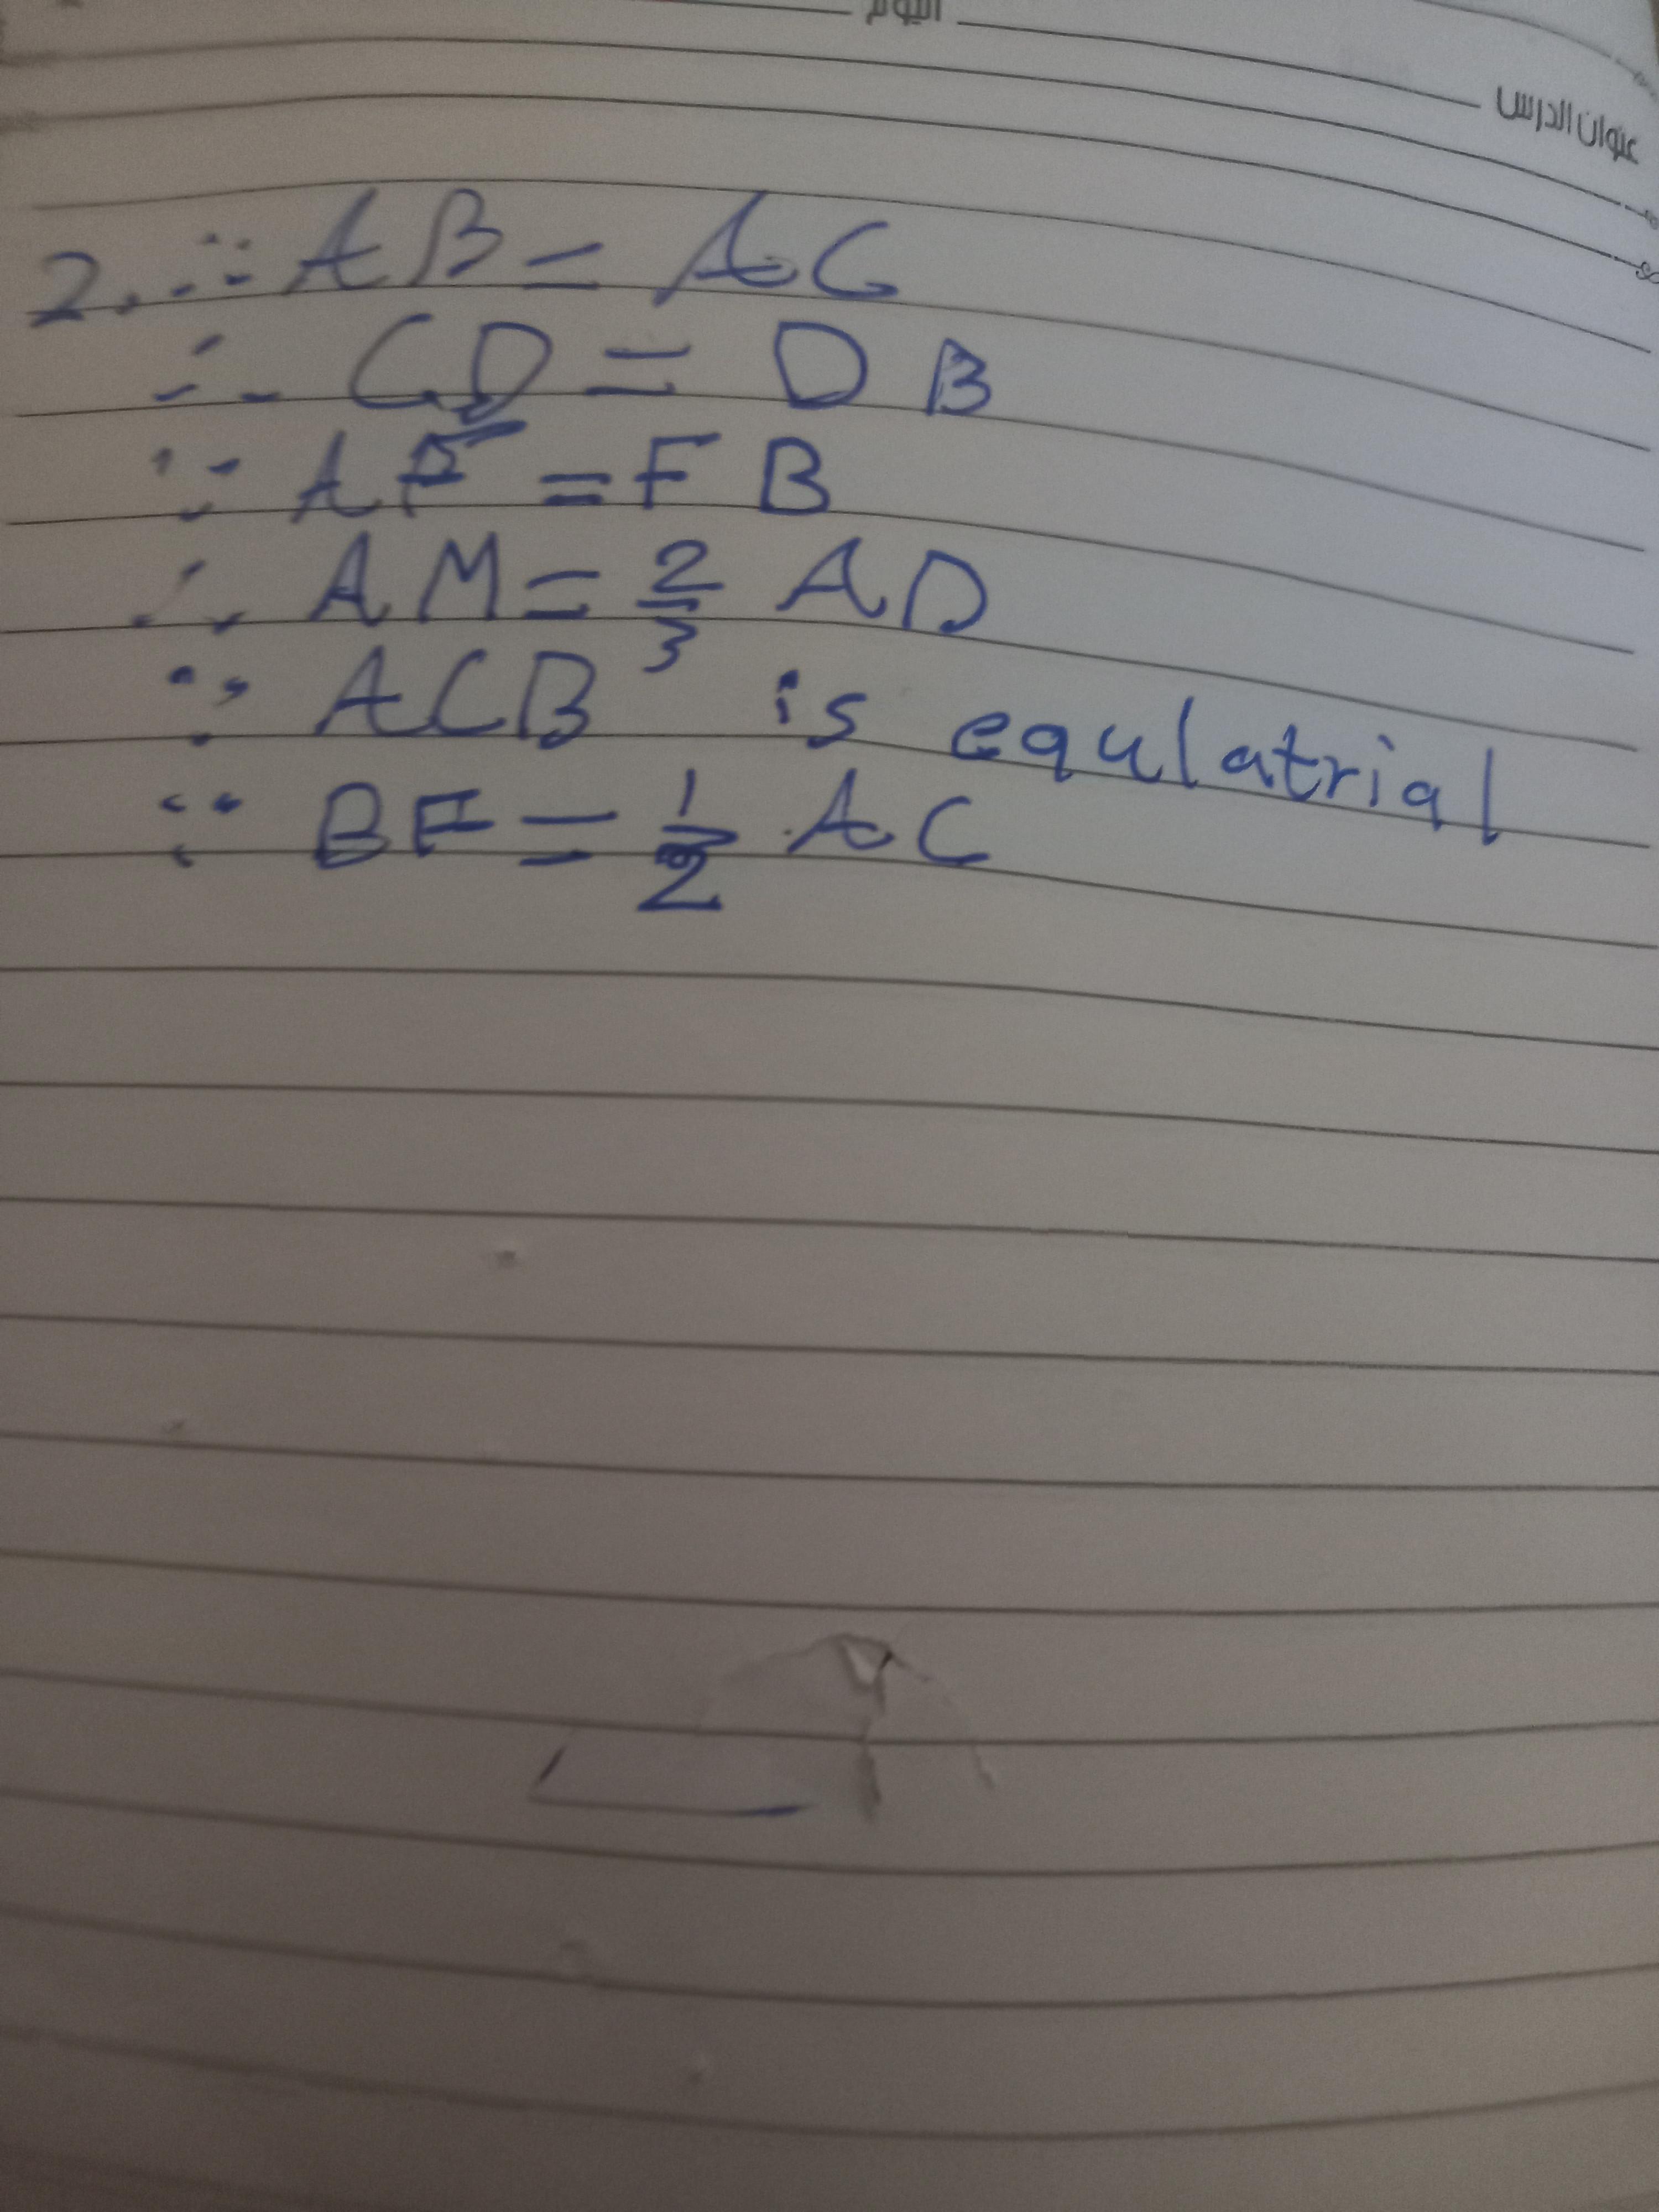 اليوم
عنوان الدرس
2. ∵ AB = AC
∴ CD = DB
∵ AF = FB
∴ AM = 2/3 AD
∵ ACB is equlatrial
∵ BF = 1/2 AC